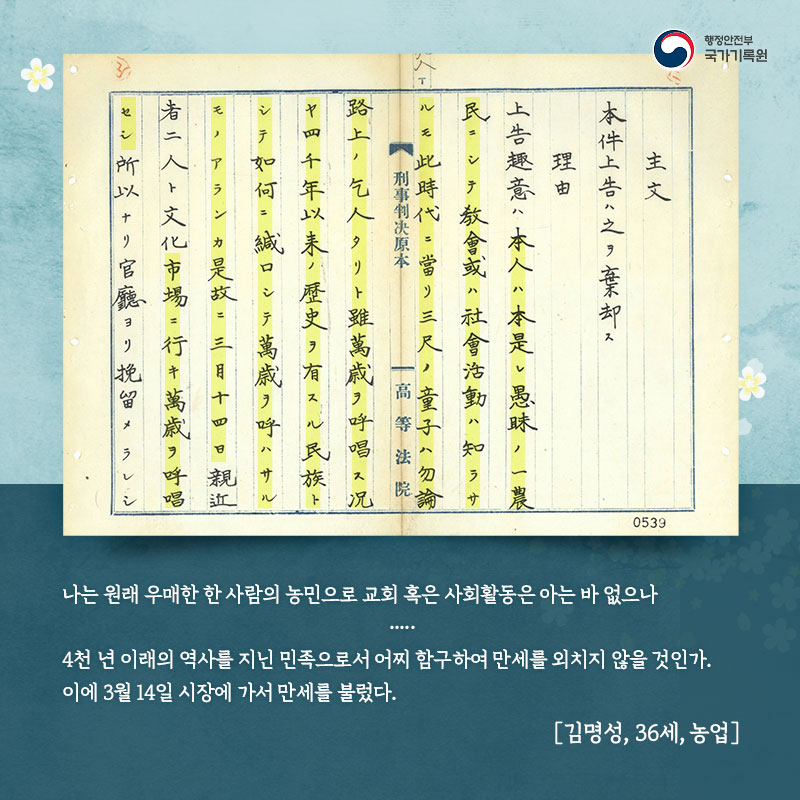 행정안전부
국가기록원
主文
本件上告ハ之ヲ棄却ス
理由
上告趣意ハ本人ハ本是レ愚昧ノ一農
民ニシテ教會或ハ社會活動ハ知ラサ
ルモ此時代ニ當リ三尺ノ童子ハ勿論
刑事判決原本
高等法院
路上ノ乞人タリト雖萬歳ヲ呼唱ス况
ヤ四千年以来ノ歴史ヲ有スル民族ト
シテ如何ニ緘口シテ萬歳ヲ呼ハサル
モノアランカ是故ニ三月十四日親近
者二人ト文化市場ニ行キ萬歳ヲ呼唱
セシ所以ナリ官廳ヨリ挽留メラレシ
0539
나는 원래 우매한 한 사람의 농민으로 교회 혹은 사회활동은 아는 바 없으나
·····
4천 년 이래의 역사를 지닌 민족으로서 어찌 함구하여 만세를 외치지 않을 것인가.
이에 3월 14일 시장에 가서 만세를 불렀다.
[김명성, 36세, 농업]